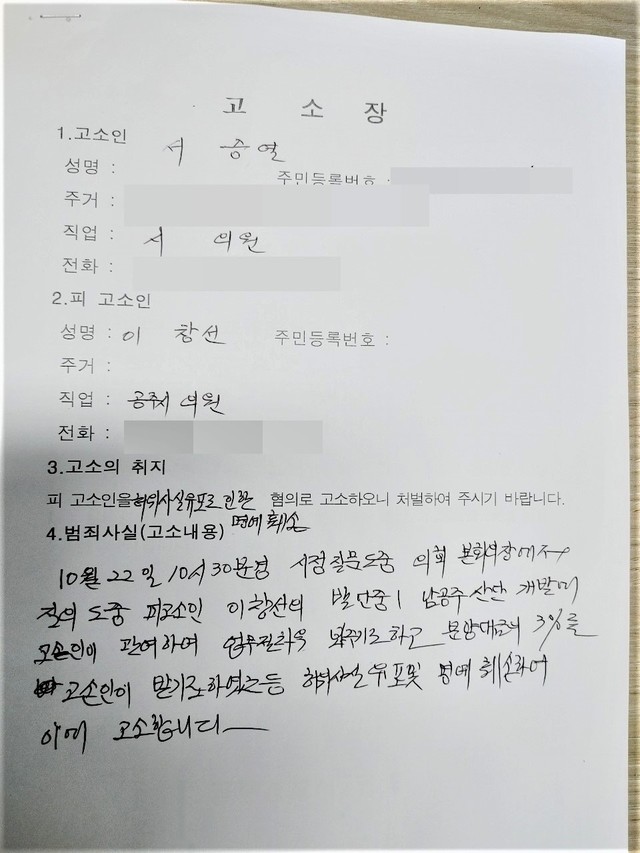 고 소 장
1.고소인
성명 : 서 승열 주민등록번호 :
주거 :
직업 : 시 의원
전화 :
2.피 고소인
성명 : 이 창선 주민등록번호 :
주거 :
직업 : 공주시 의원
전화 :
3.고소의 취지
피 고소인을 허위사실유포로 인한 혐의로 고소하오니 처벌하여 주시기 바랍니다.
명예훼손
4.범죄사실(고소내용)
10월 22일 10시 30분경 시정질문도중 의회 본회의장에서
질의 도중 피고소인 이창선의 발언중 남공주 산단 개발에
고소인이 관여하여 업무절차를 하고 분양대금의 3%를
고소인이 받기로하였다는등 허위사실유포및 명예훼손하여
이에 고소합니다